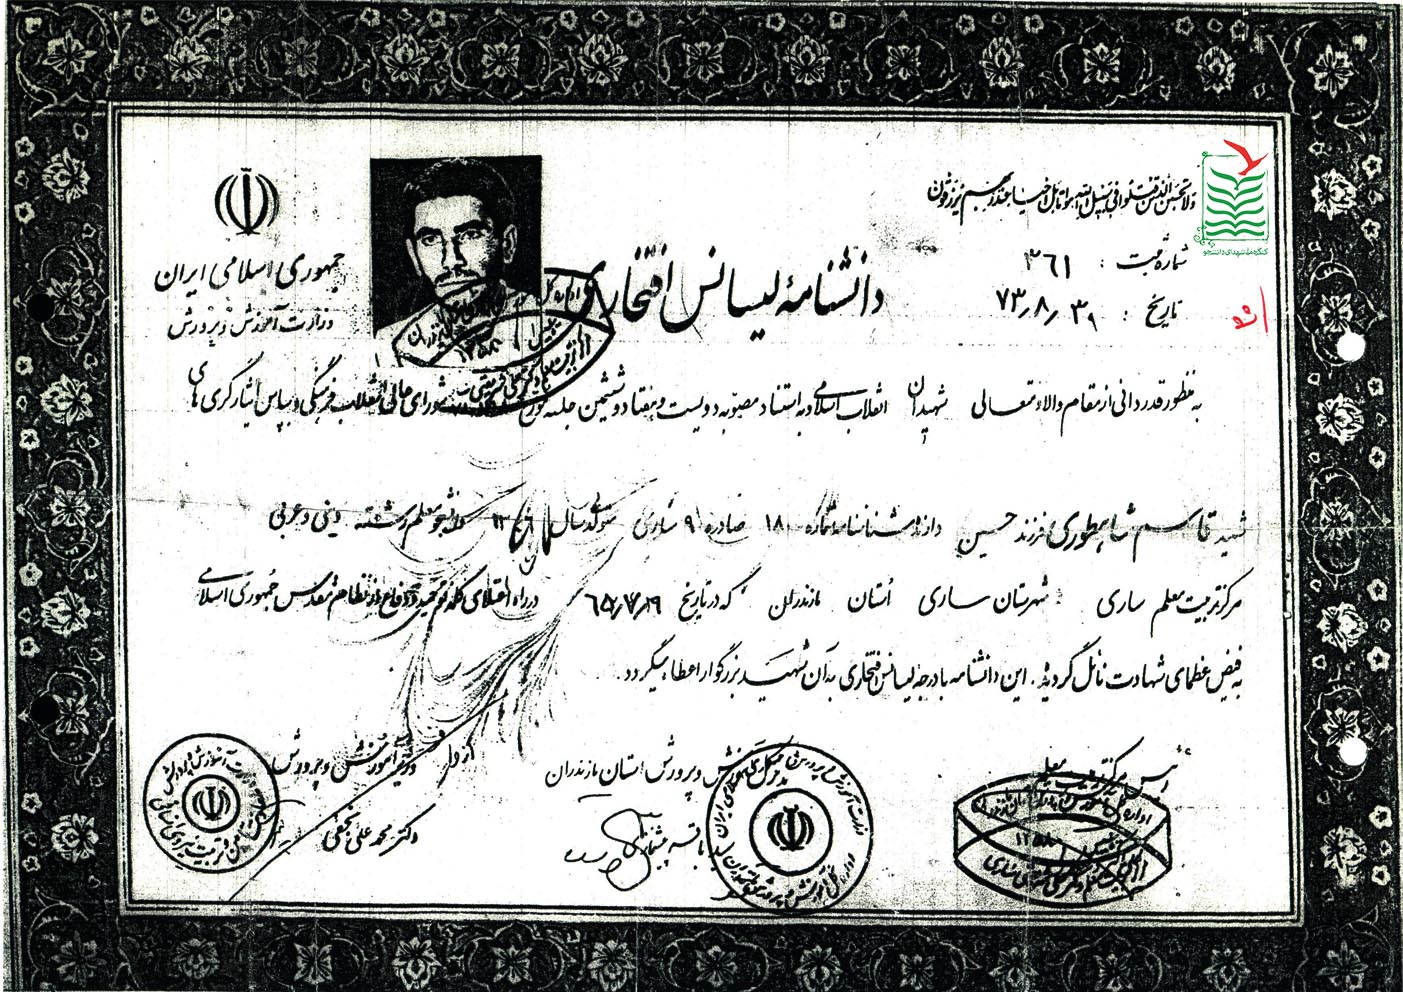 ولا تحسبن الذین قتلوا فی سبیل الله امواتا بل احیاء عند ربهم یرزقون
کنگره ملی شهدای دانشجو
شماره ثبت : ۳۶۱
تاریخ : ۷۳/۸/۳۰
جمهوری اسلامی ایران
وزارت آموزش و پرورش
دانشنامهٔ لیسانس افتخاری
به منظور قدردانی از مقام والا و متعالی شهیدان انقلاب اسلامی و به استناد مصوبه دویست و هفتاد و ششمین جلسه مورخ شورای عالی انقلاب فرهنگی و بپاس ایثارگری های
شهید قاسم شاهطوری فرزند حسین دارنده شناسنامه شماره ۱۸ صادره ۹ ساری متولد سال دانشجو معلم رشته دینی و عربی
مرکز تربیت معلم ساری شهرستان ساری استان مازندران که در تاریخ ۶۵/۷/۱۹ در راه اعتلای کلمه توحید و دفاع از نظام مقدس جمهوری اسلامی
به فیض عظمای شهادت نائل گردید. این دانشنامه با درجه لیسانس افتخاری به آن شهید بزرگوار اعطاء میگردد.
رئیس مرکز تربیت معلم
مدیر کل آموزش و پرورش استان مازندران
از طرف وزیر آموزش و پرورش
دکتر محمد علی نجفی